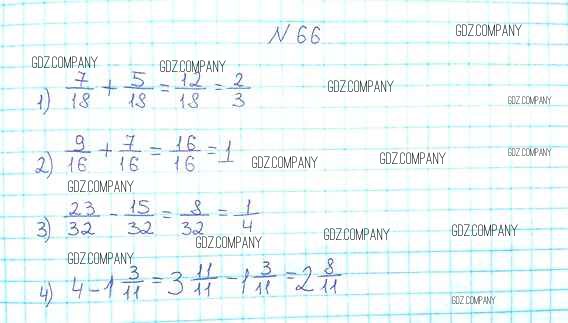 N 66
GDZ.COMPANY
GDZ.COMPANY GDZ.COMPANY
1) 7/18 + 5/18 = 12/18 = 2/3 GDZ.COMPANY
GDZ.COMPANY
2) 9/16 + 7/16 = 16/16 = 1 GDZ.COMPANY GDZ.COMPANY GDZ.COMPANY
GDZ.COMPANY
3) 23/32 - 15/32 = 8/32 = 1/4
GDZ.COMPANY GDZ.COMPANY GDZ.COMPANY
GDZ.COMPANY
4) 4 - 1 3/11 = 3 11/11 - 1 3/11 = 2 8/11
GDZ.COMPANY